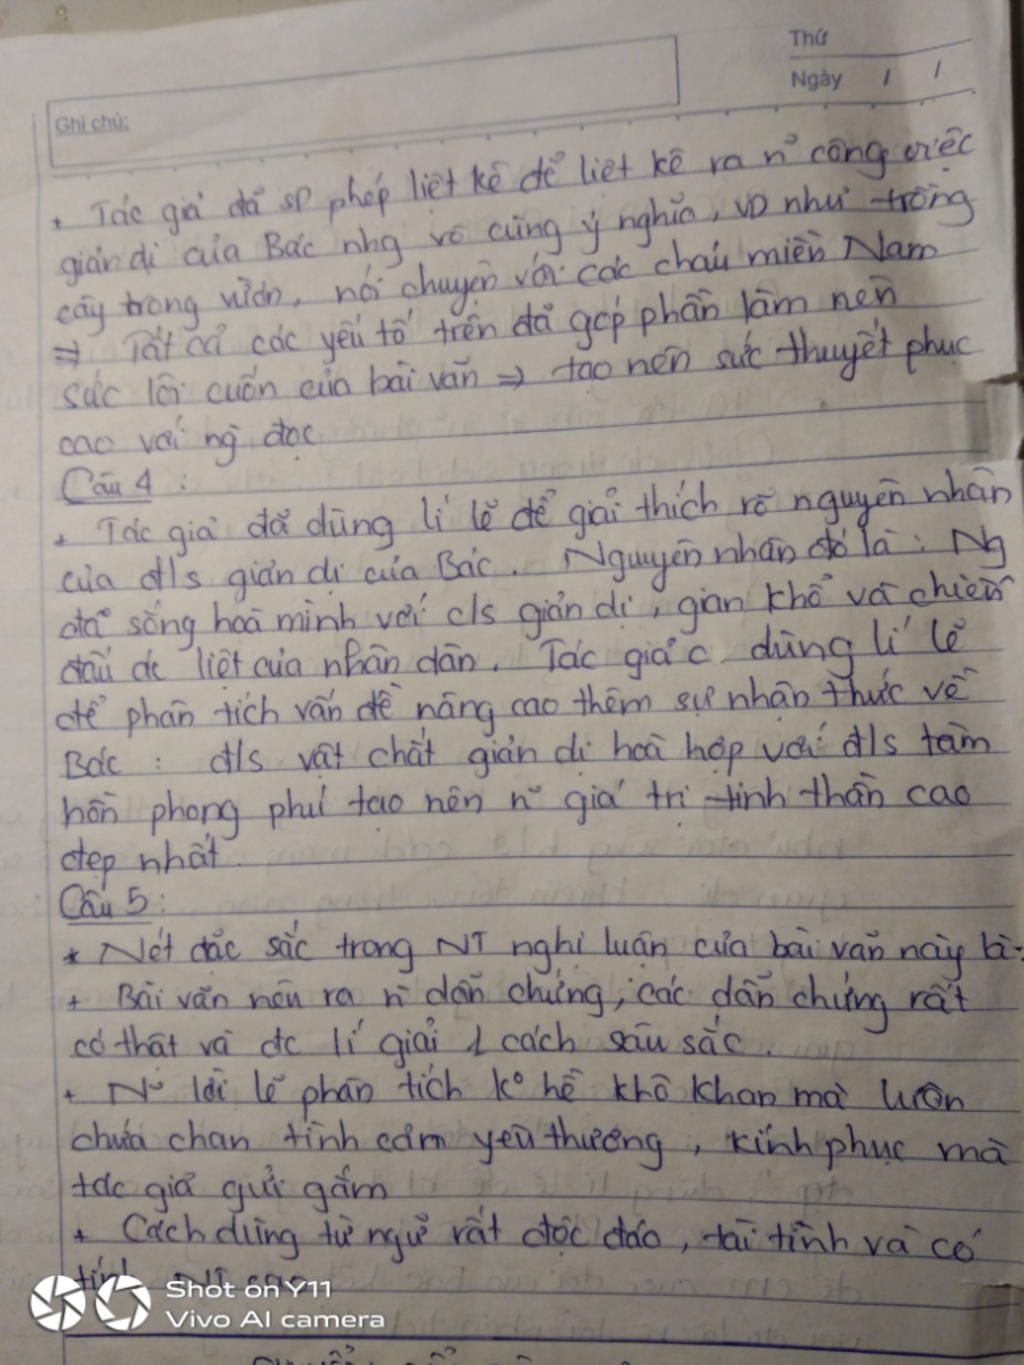 Thứ
Ngày / /
Ghi chú:
+ Tác giả đã SD phép liệt kê để liệt kê ra n~ công việc
giản dị của Bác nhg vô cùng ý nghĩa, VD như trồng
cây trong vườn, nói chuyện với các cháu miền Nam
⇒ Tất cả các yếu tố trên đã góp phần làm nên
sức lôi cuốn của bài văn ⇒ tạo nên sức thuyết phục
cao với ng đọc
Câu 4 :
+ Tác giả đã dùng lí lẽ để giải thích rõ nguyên nhân
của đ/s giản dị của Bác. Nguyên nhân đó là : Ng
đã sống hoà mình với c/s giản dị, gian khổ và chiến
đấu ác liệt của nhân dân. Tác giả c dùng lí lẽ
để phân tích vấn đề nâng cao thêm sự nhận thức về
Bác : đ/s vật chất giản dị hoà hợp với đ/s tâm
hồn phong phú tạo nên n~ giá trị tinh thần cao
đẹp nhất.
Câu 5 :
* Nét đặc sắc trong NT nghị luận của bài văn này là:
+ Bài văn nêu ra n~ dẫn chứng, các dẫn chứng rất
có thật và đc lí giải 1 cách sâu sắc.
+ N~ lời lẽ phân tích k° hề khô khan mà luôn
chứa chan tình cảm yêu thương, kính phục mà
tác giả gửi gắm
+ Cách dùng từ ngữ rất độc đáo, tài tình và có
tính NT cao
Shot on Y11
Vivo AI camera